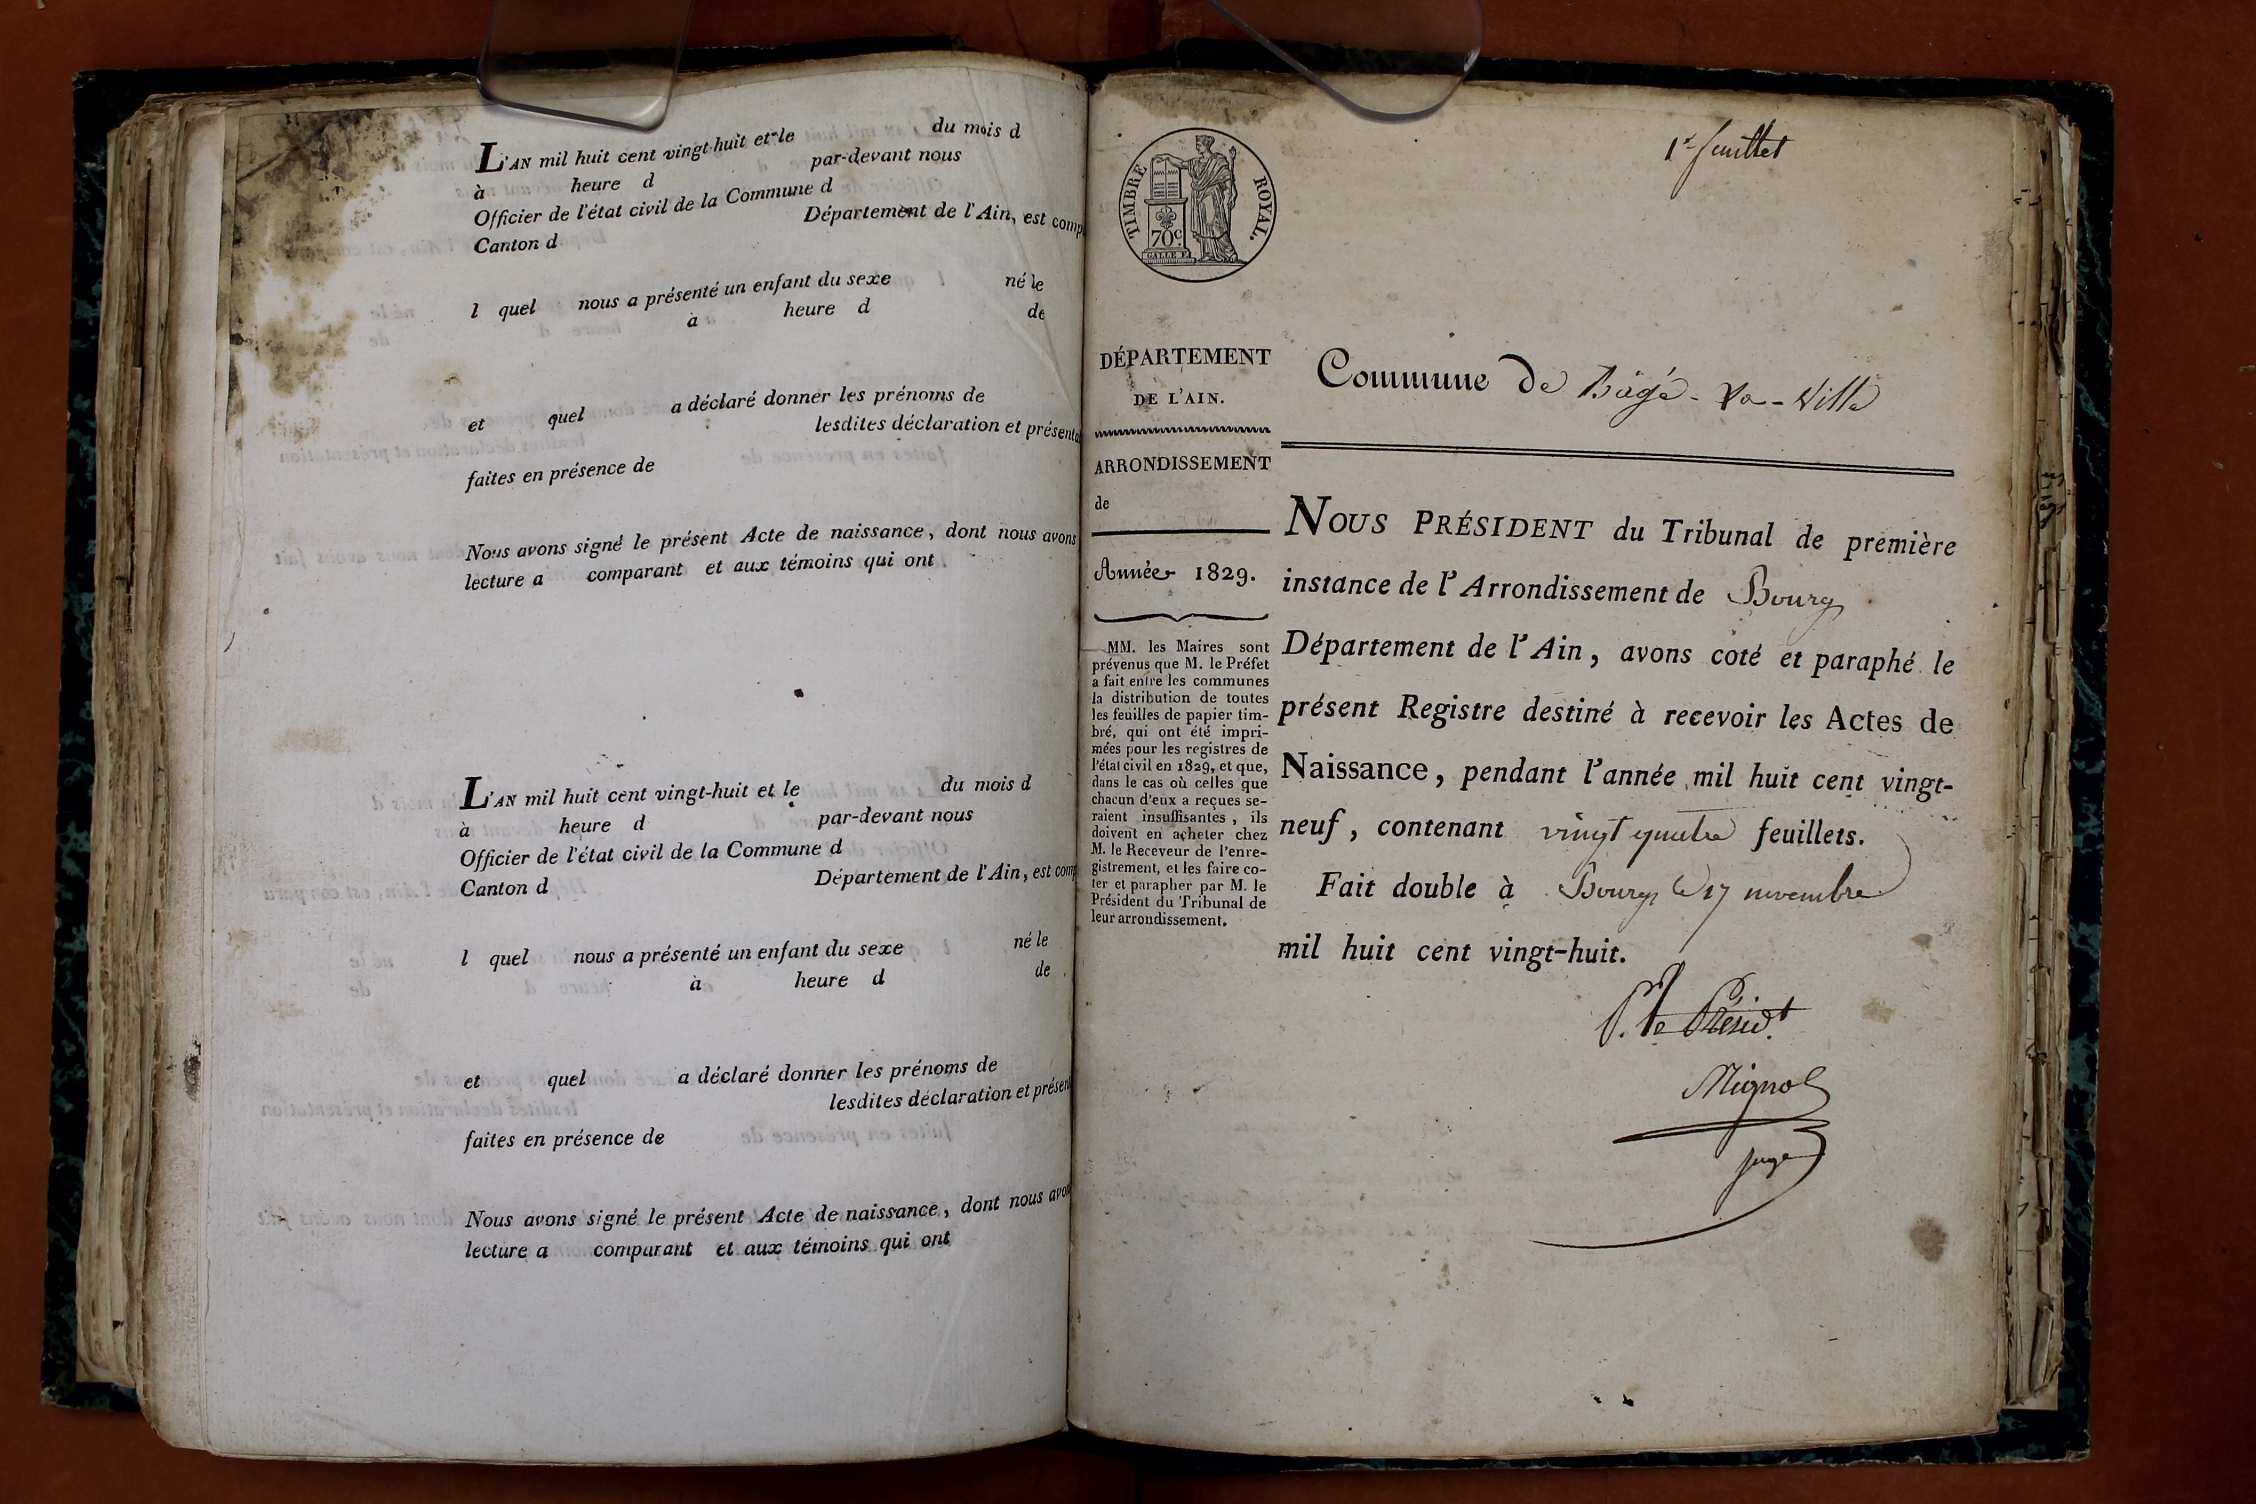 L'AN mil huit cent vingt-huit et le du mois d
à heure d par-devant nous
Officier de l'état civil de la Commune d
Canton d Département de l'Ain, est comp
l quel nous a présenté un enfant du sexe né le
à heure d de
et quel a déclaré donner les prénoms de
lesdites déclaration et présenta
faites en présence de
Nous avons signé le présent Acte de naissance, dont nous avons
lecture a comparant et aux témoins qui ont
L'AN mil huit cent vingt-huit et le du mois d
à heure d par-devant nous
Officier de l'état civil de la Commune d
Canton d Département de l'Ain, est comp
l quel nous a présenté un enfant du sexe né le
à heure d de
et quel a déclaré donner les prénoms de
lesdites déclaration et présent
faites en présence de
Nous avons signé le présent Acte de naissance, dont nous avon
lecture a comparant et aux témoins qui ont
1r feuillet
TIMBRE ROYAL.
70c.
DÉPARTEMENT
DE L'AIN.
ARRONDISSEMENT
de
Année 1829.
MM. les Maires sont
prévenus que M. le Préfet
a fait entre les communes
la distribution de toutes
les feuilles de papier tim-
bré, qui ont été impri-
mées pour les registres de
l'état civil en 1829, et que,
dans le cas où celles que
chacun d'eux a reçues se-
raient insuffisantes, ils
doivent en acheter chez
M. le Receveur de l'enre-
gistrement, et les faire co-
ter et parapher par M. le
Président du Tribunal de
leur arrondissement.
Commune de Bâgé-la-Ville
NOUS PRÉSIDENT du Tribunal de première
instance de l'Arrondissement de Bourg
Département de l'Ain, avons coté et paraphé le
présent Registre destiné à recevoir les Actes de
Naissance, pendant l'année mil huit cent vingt-
neuf, contenant vingt quatre feuillets.
Fait double à Bourg le 17 novembre
mil huit cent vingt-huit.
P. le Présidt.
juge